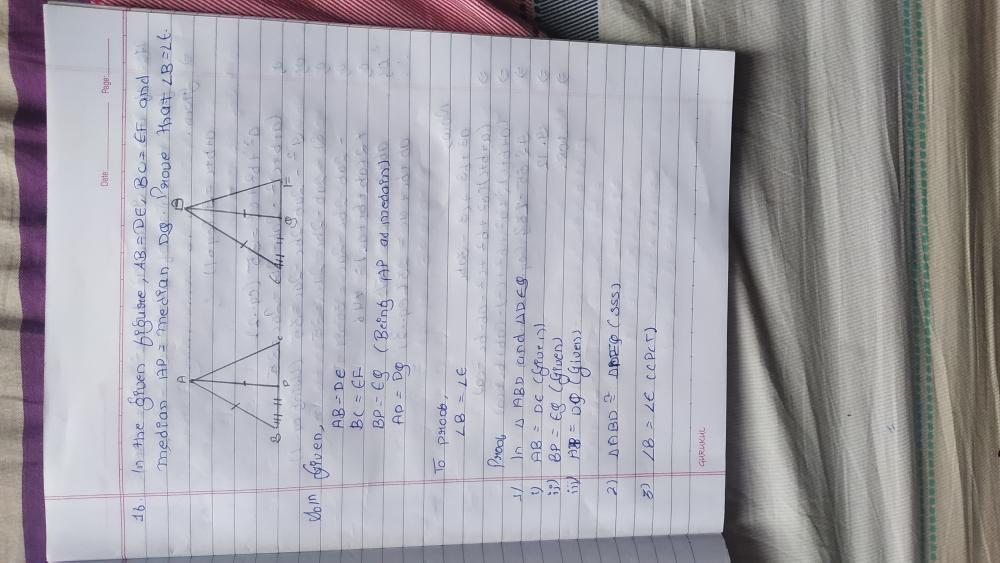 Date: Page:
16. In the given figure, AB = DE, BC = EF and
median AP = median DQ. Prove that ∠B = ∠E.
A
D
B P C
E Q F
Soln Given,
AB = DE
BC = EF
BP = EQ (Being AP as medain)
AP = DQ
To proob,
∠B = ∠E
Proob,
1) In △ ABD and △DEQ
i) AB = DE (Given)
ii) BP = EQ (Given)
iii) AP = DQ (Given)
2) △ABD ≅ △DEQ (SSS)
3) ∠B = ∠E (CPCT)
GURUKUL